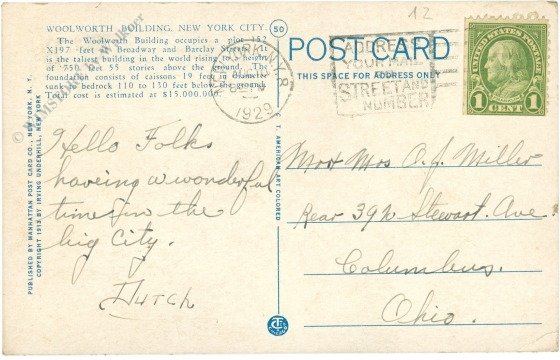 WOOLWORTH BUILDING, NEW YORK CITY.
The Woolworth Building occupies a plot 152
X197 feet on Broadway and Barclay Street. It
is the tallest building in the world rising to a height
of 750 feet 55 stories above the ground. The
foundation consists of caissons 19 feet in diameter
sunk to bedrock 110 to 130 feet below the ground.
Total cost is estimated at $15,000,000.
50
POST CARD
THIS SPACE FOR ADDRESS ONLY
12
NEW YORK, N.Y.
1929
ADDRESS
YOUR MAIL
STREET AND
NUMBER
UNITED STATES POSTAGE
1 CENT 1
Hello Folks
having a wonderful
time in the
big City.
Dutch
Mr & Mrs O. J. Miller
Rear 39½ Stewart. Ave
Columbus.
Ohio.
PUBLISHED BY MANHATTAN POST CARD CO., NEW YORK, N. Y.
COPYRIGHT 1913 BY IRVING UNDERHILL, NEW YORK
T. AMERICAN ART COLORED